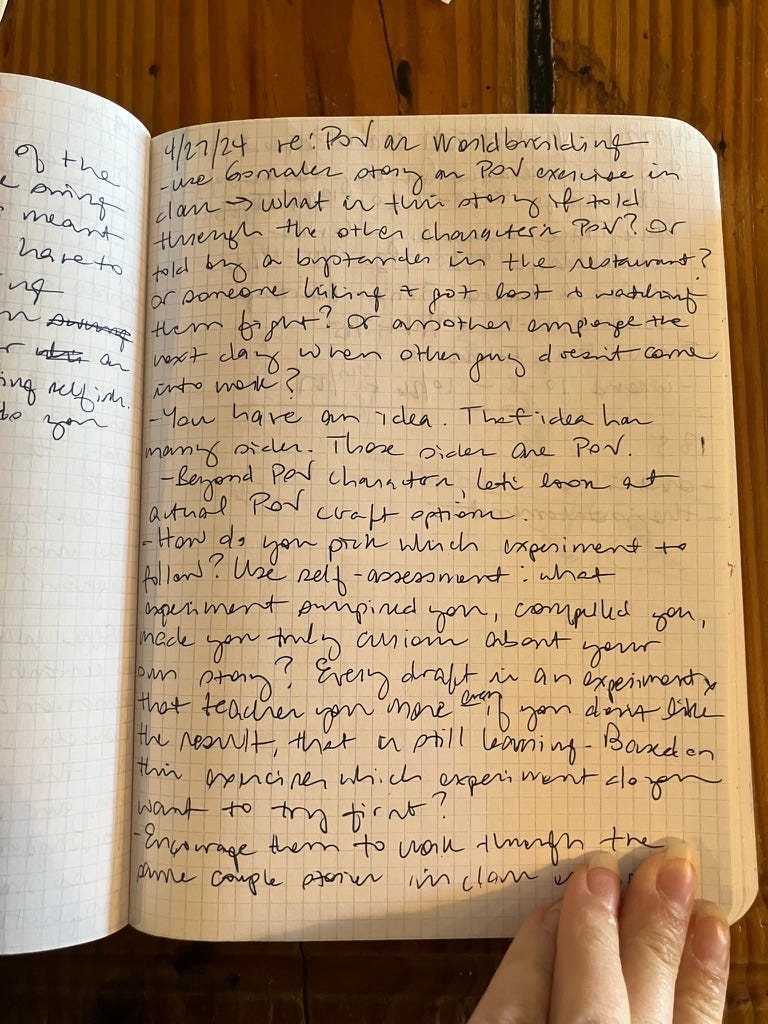 of the
e swing
meant
have to
ng
an
ing selfish.
do you
4/27/24 re: POV as Worldbuilding
-use Gonzalez story as POV exercise in
class → what is this story if told
through the other character's POV? Or
told by a bystander in the restaurant?
or someone hiking & got lost & watching
them fight? Or another employee the
next day when other guy doesn't come
into work?
-You have an idea. That idea has
many sides. Those sides are POV.
-Beyond POV character, let's look at
actual POV craft options.
-How do you pick which experiment to
follow? Use self-assessment: what
experiment surprised you, compelled you,
made you truly curious about your
own story? Every draft is an experiment
that teaches you more even if you don't like
the result, that is still learning. Based on
this exercise, which experiment do you
want to try first?
-Encourage them to work through the
same couple stories in class